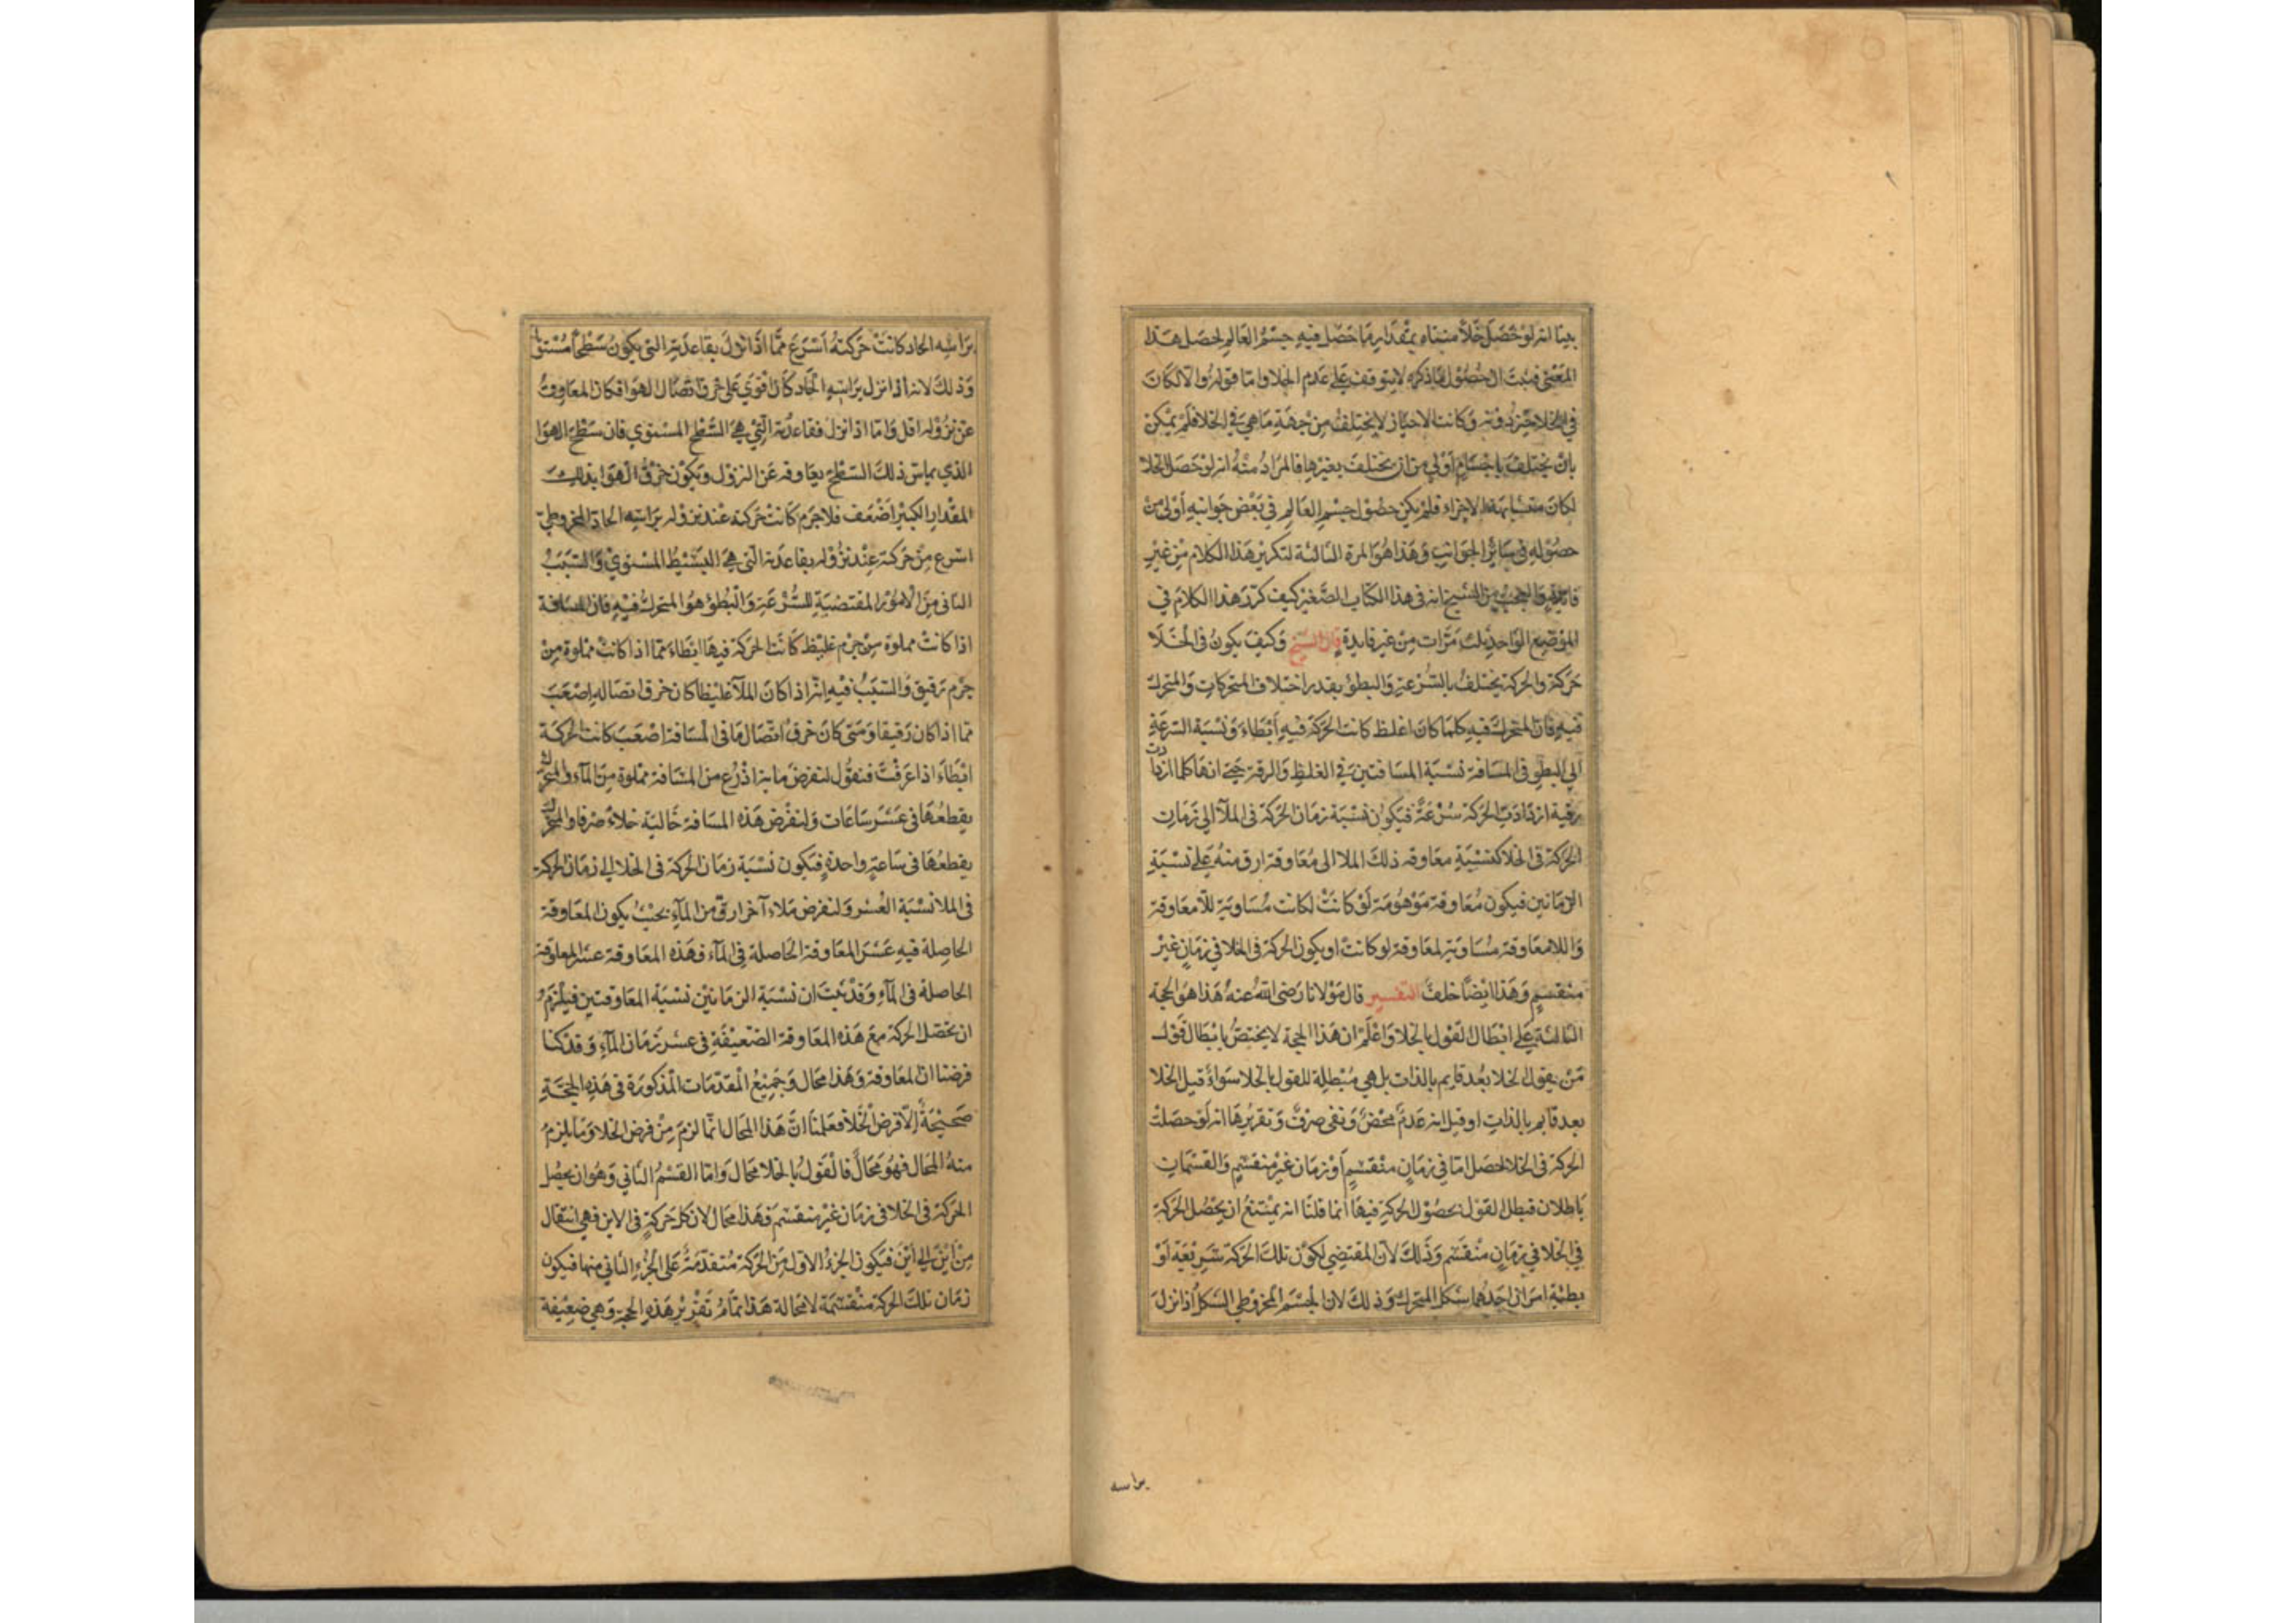 بينا انه لو حصل خلأ متناه بمقدار ما حصل فيه جسم العالم لحصل هذا
المعنى فثبت ان حصول ما ذكره لا يتوقف على عدم الخلا واما قوله والا لكان
في الخلا حيز دونه وكانت الاحياز لا يختلف من جهة ما هي في الخلا فلم يمكن
بان يختلف باجسام أولى من ان يختلف بغيرها فالمراد منه انه لو حصل الخلا
لكان متشابهة الاجزاء فلم يكن حصول جسم العالم في بعض جوانبه أولى من
حصوله في سائر الجوانب وهذا هو المرة الثالثة لتكرير هذا الكلام من غير
فايدة والعجب من الشيخ انه في هذا الكتاب الصغير كيف كرر هذا الكلام في
الموضع الواحد ثلث مرات من غير فايدة قال الشيخ وكيف يكون في الخلا
حركة والحركة يختلف بالسرعة والبطؤ بقدر اختلاف المتحركات والمتحرك
فيه فان المتحرك فيه كلما كان اغلظ كانت الحركة فيه أبطاء ونسبة السرعة
الى البطو في المسافة نسبة المسافتين في الغلظ والرقة حتى انها كلما ازدادت
رقية ازدادت الحركة سرعة فيكون نسبة زمان الحركة في الملآ الى زمان
الحركة في الخلا كنسبة معاوقة ذلك الملا الى معاوقة ارق منه على نسبة
الزمانين فيكون معاوقة موهومة لو كانت لكانت مساوية للآمعاوقة
واللامعاوقة مساوية لمعاوقة لو كانت او يكون الحركة في الخلا في زمان غير
منقسم وهذا ايضا خلف التفسير قال مولانا رضى الله عنه هذا هو الحجة
الثالثة على ابطال القول بالخلا واعلم ان هذا الحجة لا يختص بابطال قول
من يقول الخلا بعد قايم بالذات بل هي مبطلة للقول بالخلا سواء قيل الخلا
بعد قايم بالذات او قيل انه عدم محض ونفي صرف وتقريرها انه لو حصلت
الحركة في الخلا لحصل اما في زمان منقسم أو زمان غير منقسم والقسمان
باطلان فبطل القول بحصول الحركة فيها انما قلنا انه يمتنع ان يحصل الحركة
في الخلا في زمان منقسم وذلك لان المقتضي لكون تلك الحركة سريعة أو
بطيئة امران احدهما شكل المتحرك وذلك لان الجسم المخروطي الشكل اذا نزل
براسه
براسه الحاد كانت حركته أسرع مما اذا نزل بقاعدته التي يكون سطحا مستويا
وذلك لانه اذا نزل براسه الحاد كان اقوي على خرق اتصال الهوا فكان المعاوقة
عن نزوله اقل واما اذا نزل فقاعدته التي هي السطح المستوي فان سطح الهوا
الذي يماس ذلك السطح يعاوقه عن النزول ويكون خرق الهوا بذلك
المقدار الكبير اضعف فلا جرم كانت حركته عند نزوله براسه الحاد المخروطي
اسرع من حركته عند نزوله بقاعدته التي هي البسيط المستوي والسبب
الثاني من الامور المقتضية للسرعة والبطؤ هو المتحرك فيه فان المسافة
اذا كانت مملوة من جرم غليظ كانت الحركة فيها ابطاء مما اذا كانت مملوة من
جرم رقيق والسبب فيه انه اذا كان الملآ غليظا كان خرق اتصاله اصعب
مما اذا كان رقيقا ومتى كان خرق اتصال ما في المسافة اصعب كانت الحركة
ابطاء اذا عرفت فنقول لنفرض ماية اذرع من المسافة مملوة من المآء والمتحرك
يقطعها في عشر ساعات ولنفرض هذه المسافة خالية خلاء صرفا والمتحرك
يقطعها في ساعة واحدة فيكون نسبة زمان الحركة في الخلا الى زمان الحركة
في الملا نسبة العشر ولنفرض ملاء آخر ارق من المآء بحيث يكون المعاوقة
الحاصلة فيه عشر المعاوقة الحاصلة في المآء فهذه المعاوقة عشر المعاوقة
الحاصلة في المآء وقد ثبت ان نسبة الزمانين نسبة المعاوقتين فيلزم
ان يحصل الحركة مع هذه المعاوقة الضعيفة في عشر زمان المآء وقد كنا
فرضنا ان لمعاوقة وهذا محال وجميع المقدمات المذكورة في هذه الحجة
صحيحة إلا فرض الخلآ فعلمنا ان هذا المحال انما لزم من فرض الخلا وما يلزم
منه المحال فهو محال فالقول بالخلا محال واما القسم الثاني وهو ان يحصل
الحركة في الخلا في زمان غير منقسم فهذا محال لان كل حركة في الاين فهي انتقال
من أين الى أين فيكون الجزء الاول من الحركة متقدمة على الجزء الثاني منها فيكون
زمان تلك الحركة منقسمة لا محالة هذا تمام تقرير هذه الحجة وهي ضعيفة